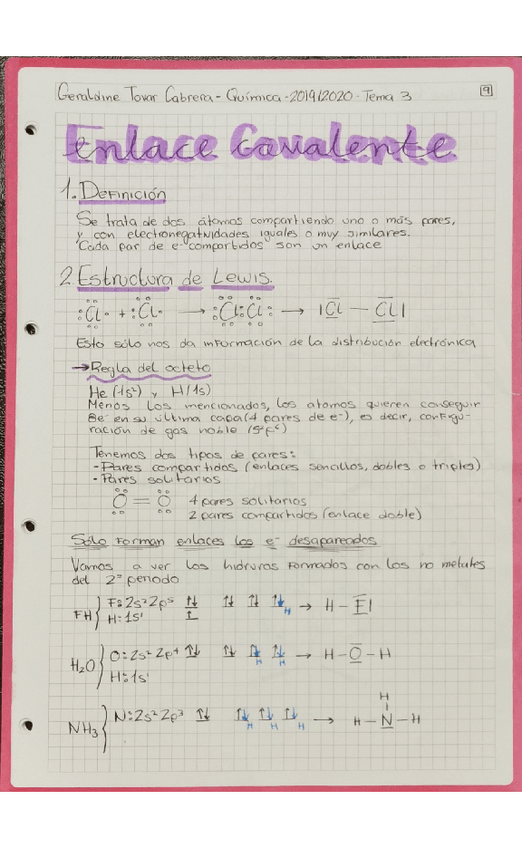 Geraldine Tovar Cabrera - Química - 2019/2020 - Tema 3
9
Enlace Covalente
1. Definición
Se trata de dos átomos compartiendo uno o más pares,
y con electronegatividades iguales o muy similares.
Cada par de e⁻ compartidos son un enlace
2. Estructura de Lewis.
:Cl· + :Cl· → :Cl:Cl: → |Cl — Cl|
Esto sólo nos da información de la distribución electrónica
→ Regla del octeto
He (1s²) y H (1s)
Menos los mencionados, los atomos quieren conseguir
8e⁻ en su última capa (4 pares de e⁻), es decir, configu-
ración de gas noble (s²p⁶)
Tenemos dos tipos de pares:
- Pares compartidos (enlaces sencillos, dobles o triples)
- Pares solitarios
O = O 4 pares solitarios
2 pares compartidos (enlace doble)
Sólo forman enlaces los e⁻ desapareados
Vamos a ver los hidruros formados con los no metales
del 2º periodo
FH } F: 2s² 2p⁵ ↑↓ ↑↓ ↑↓ ↑↓ H → H - F|
H: 1s¹ ↑
H₂O } O: 2s² 2p⁴ ↑↓ ↑↓ ↑↓ H ↑↓ H → H - O - H
H: 1s¹
H
NH₃ } N: 2s² 2p³ ↑↓ ↑↓ H ↑↓ H ↑↓ H → H - N - H